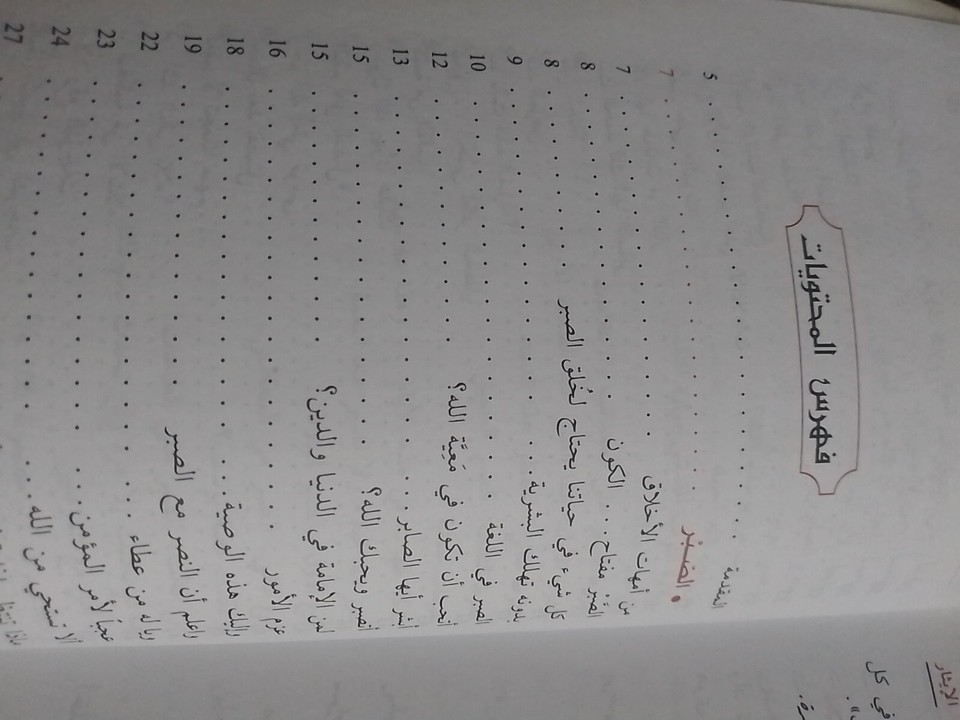 فهرس المحتويات
المقدمة . . . . . . . . . . . . . . . . 5
• الصَّبْر . . . . . . . . . . . . . . . . 7
من أمهات الأخلاق . . . . . . . . . . . . . . . . 7
الصَّبْرُ مفتاح . . . الكون . . . . . . . . . . . . . . . . 8
كل شيء في حياتنا يحتاج لخُلق الصبر . . . . . . . . 8
بدونه تهلك البشرية . . . . . . . . . . . . . . . . 9
الصبر في اللغة . . . . . . . . . . . . . . . . 10
أتحب أن تكون في مَعِيَّة الله؟ . . . . . . . . . . . . 12
أبشر أيها الصابر . . . . . . . . . . . . . . . . 13
اصبر ويحبك الله؟ . . . . . . . . . . . . . . . . 15
لمن الإمامة في الدنيا والدين؟ . . . . . . . . . . . . 15
عزم الأمور . . . . . . . . . . . . . . . . 16
وإليك هذه الوصية . . . . . . . . . . . . . . . . 18
واعلم أن النصر مع الصبر . . . . . . . . . . . . 19
وياله من عطاء . . . . . . . . . . . . . . . . 22
عجباً لأمر المؤمن . . . . . . . . . . . . . . . . 23
ألا نستحي من الله . . . . . . . . . . . . . . . . 24
27
الإيثار
في كل